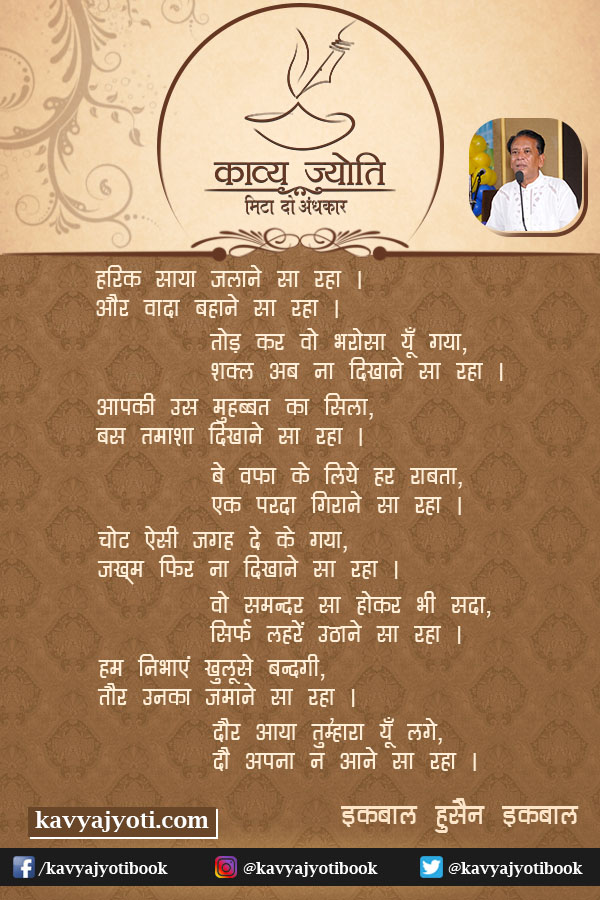 काव्य ज्योति
मिटा दो अंधकार
हरिक साया जलाने सा रहा |
और वादा बहाने सा रहा |
तोड़ कर वो भरोसा यूँ गया,
शक्ल अब ना दिखाने सा रहा |
आपकी उस मुहब्बत का सिला,
बस तमाशा दिखाने सा रहा |
बे वफा के लिये हर राबता,
एक परदा गिराने सा रहा |
चोट ऐसी जगह दे के गया,
जख़्म फिर ना दिखाने सा रहा |
वो समन्दर सा होकर भी सदा,
सिर्फ लहरें उठाने सा रहा |
हम निभाएं खुलूसे बन्दगी,
तौर उनका जमाने सा रहा |
दौर आया तुम्हारा यूँ लगे,
दौ अपना न आने सा रहा |
इकबाल हुसैन इकबाल
kavyajyoti.com
/kavyajyotibook @kavyajyotibook @kavyajyotibook